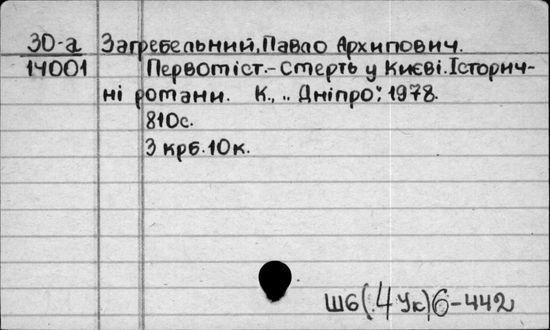 30-а Загребельний, Павло Архипович.
14001 Первоміст.-Смерть у Києві. Історич-
ні романи. К., „Дніпро", 1978.
810с.
3 крб. 10 к.
Ш6(4Ук)6-442